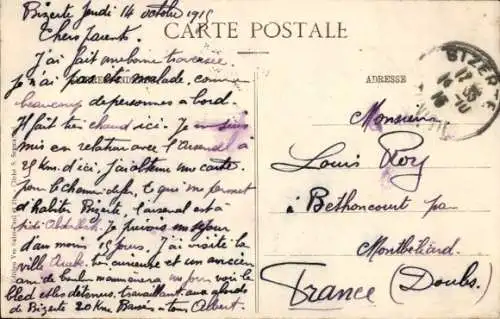 Bizerte Jeudi 14 octobre 1915
CARTE POSTALE
Chers parents.
J'ai fait une bonne traversée
je n'ai pas été malade, comme
beaucoup de personnes à bord.
Il fait très chaud ici. Je me suis
mis en relation avec l'Arsenal à
25 Km. d'ici. J'ai obtenu une carte
pour le chemin de fer, ce qui me permet
d'habiter Bizerte, l'arsenal est à
Sidi Abdallah. Je prévois un séjour
d'au moins 15 jours. J'ai visité la
ville Arabe. très curieuse et un ancien
ami de m'a fait voir le
bled et les détenus travaillant aux abords
de Bizerte 20 Km. Baisers à tous Albert.
ADRESSE
Monsieur
Louis Roy
à Bethoncourt par
Montbéliard.
France (Doubs.)
BIZERTE